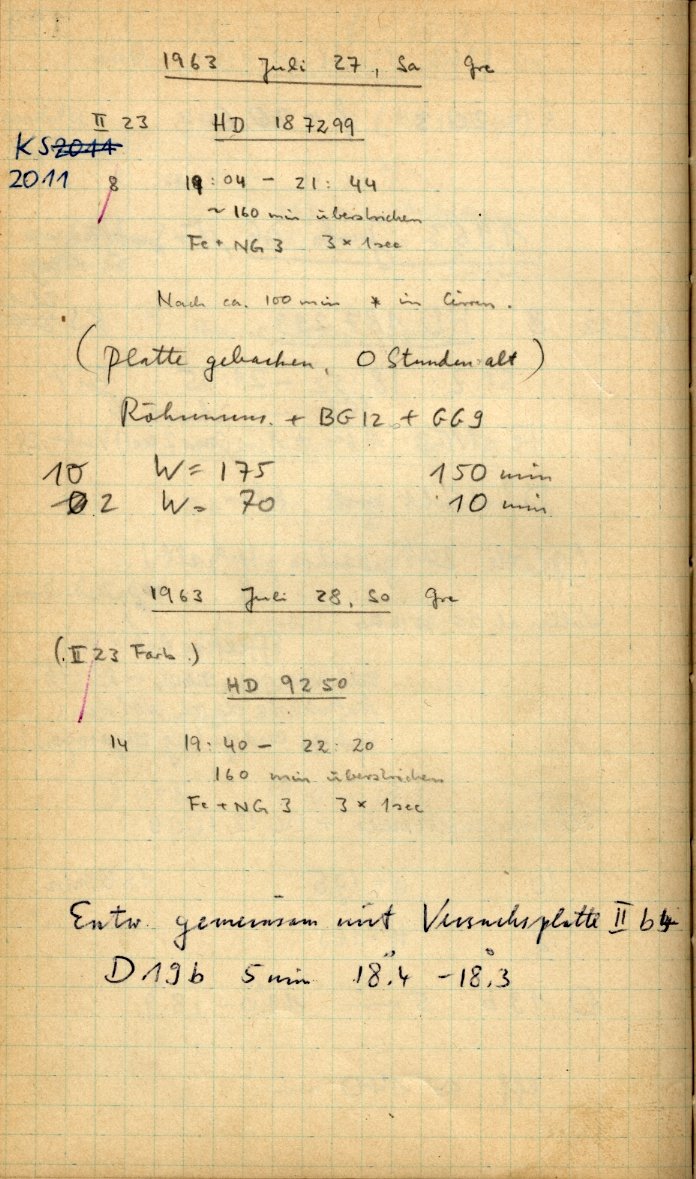 1963 Juli 27, Sa Gre
II 23 HD 187299
KS 2011
2011 8 19:04 - 21:44
~ 160 min überstrichen
Fe + NG 3 3 × 1sec
Nach ca. 100 min * in Cirren.
(Platte gebacken, 0 Stunden alt)
+ BG 12 + GG9
10 W = 175 150 min
2 W = 70 10 min
1963 Juli 28, So Gre
(II 23 Farb.)
HD 9250
14 19:40 - 22:20
160 min überstrichen
Fe + NG 3 3 × 1sec
Entw. gemeinsam mit Versuchsplatte II b 4
D19b 5 min 18°.4 - 18°.3